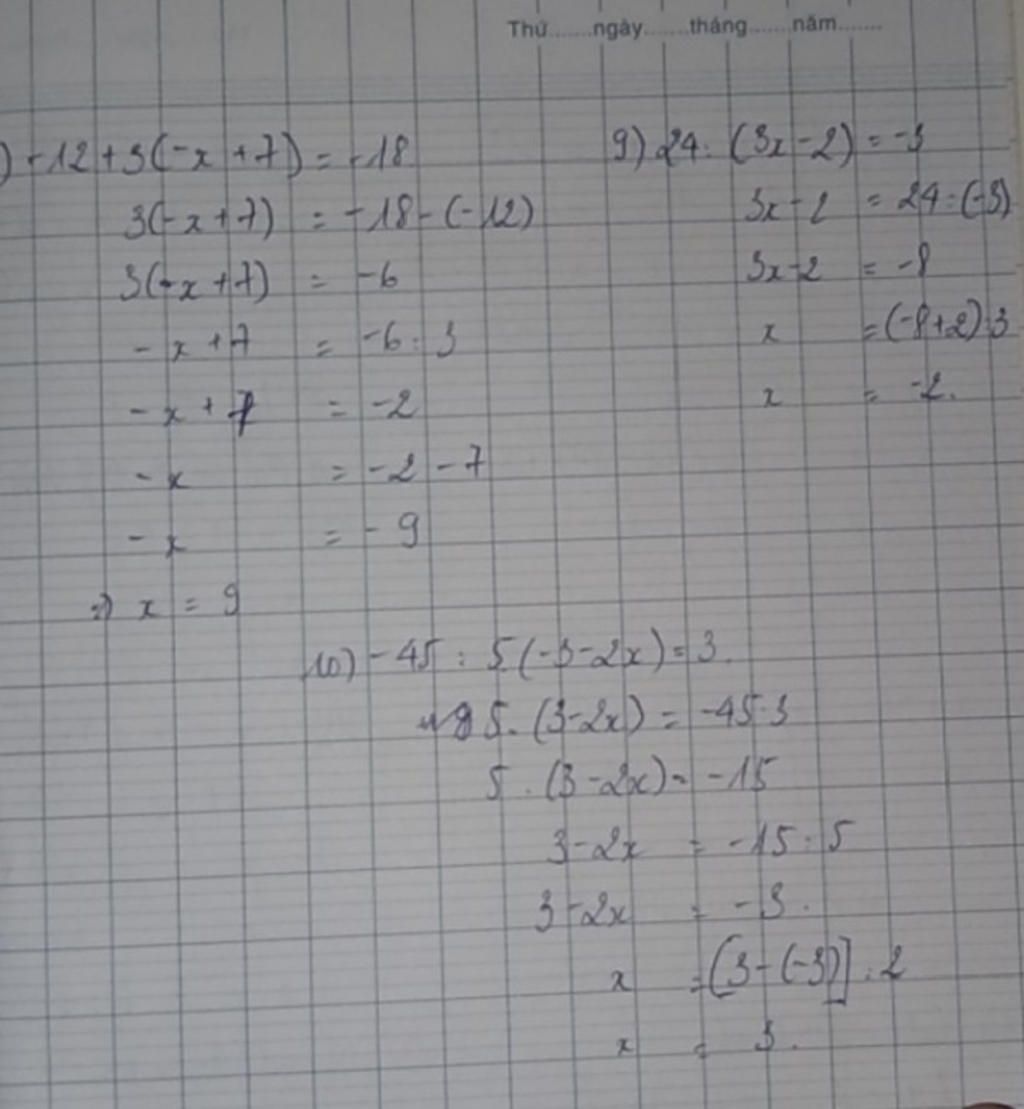 Thứ.......ngày.......tháng.......năm.......
) -12 + 3(-x + 7) = -18
3(-x + 7) = -18 - (-12)
3(-x + 7) = -6
-x + 7 = -6 : 3
-x + 7 = -2
-x = -2 - 7
-x = -9
=) x = 9
9) 24 : (3x - 2) = -3
3x - 2 = 24 : (-3)
3x - 2 = -8
x = (-8 + 2) : 3
x = -2.
10) -45 : 5.(-3 - 2x) = 3.
5. (3 - 2x) = -45 : 3
5 . (3 - 2x) = -15
3 - 2x = -15 : 5
3 - 2x = -3.
x = [3 - (-3)] : 2
x = 3.